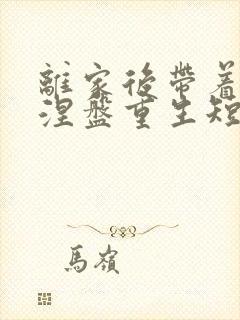 離家後帶着
涅盤重生短
馬嶺